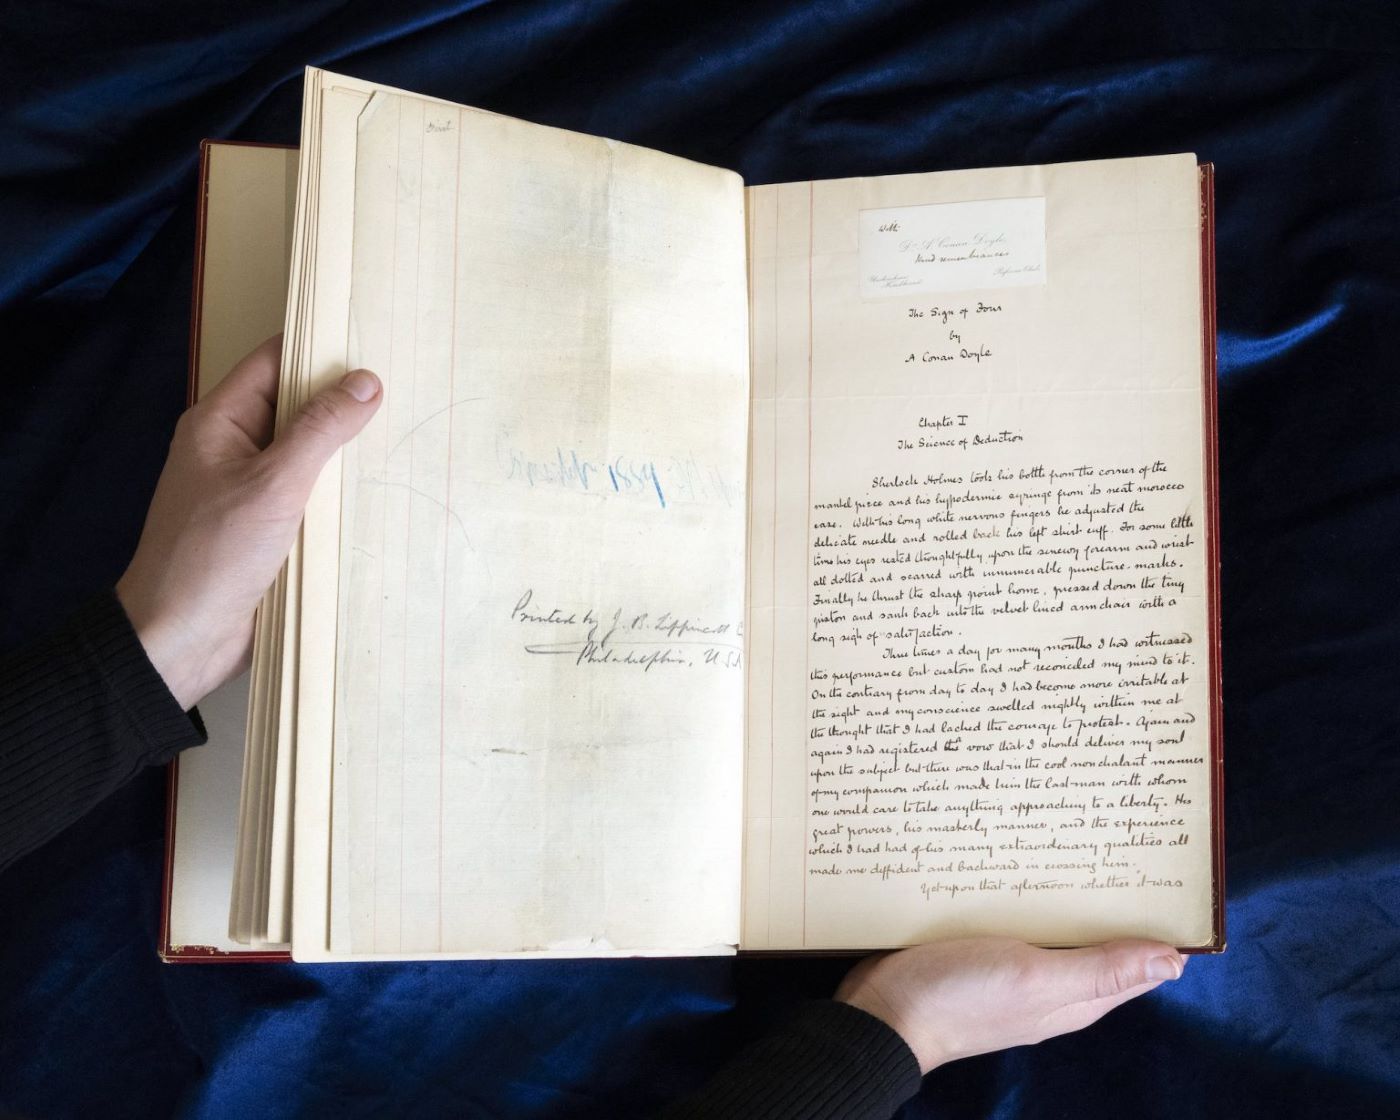 Printed by J. B. Lippincott C
Philadelphia, USA
With
Dr. A. Conan Doyle,
Kind remembrances
Reform Club
The Sign of Four
by
A Conan Doyle
Chapter I
The Science of Deduction
Sherlock Holmes took his bottle from the corner of the
mantel piece and his hypodermic syringe from its neat morocco
case. With his long white nervous fingers he adjusted the
delicate needle and rolled back his left shirt cuff. For some little
time his eyes rested thoughtfully upon the sinewy forearm and wrist
all dotted and scarred with innumerable puncture-marks.
Finally he thrust the sharp point home, pressed down the tiny
piston and sank back into the velvet lined armchair with a
long sigh of satisfaction.
Three times a day for many months I had witnessed
this performance but custom had not reconciled my mind to it.
On the contrary from day to day I had become more irritable at
the sight and my conscience swelled nightly within me at
the thought that I had lacked the courage to protest. Again and
again I had registered a vow that I should deliver my soul
upon the subject but there was that in the cool nonchalant manner
of my companion which made him the last man with whom
one would care to take anything approaching to a liberty. His
great powers, his masterly manner, and the experience
which I had had of his many extraordinary qualities all
made me diffident and backward in crossing him.
Yet upon that afternoon whether it was